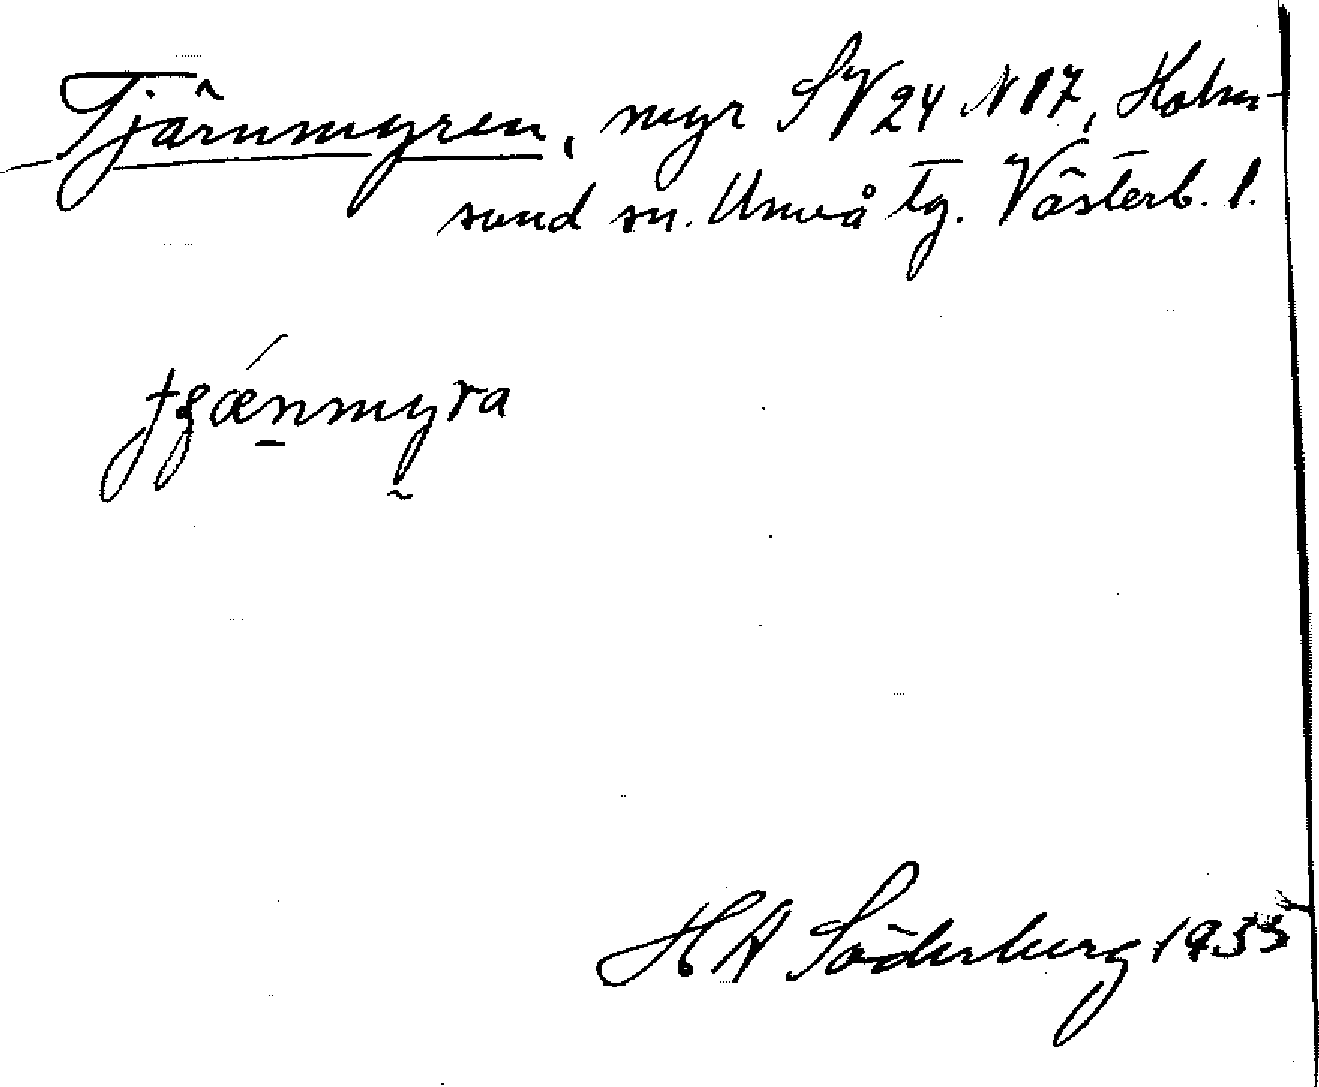 Tjärnmyren, myr SV 24 N 17, Holm-
sund sn. Umeå tg. Västerb. l.
HA Söderberg 1933